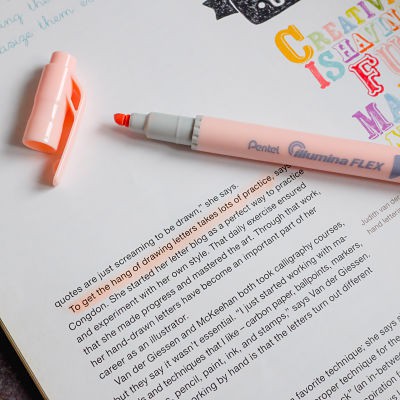 asize them ex
CREATIVITY
IS HAVIN
FU
MA
Pentel illumina FLEX
quotes are just screaming to be drawn," she says.
To get the hang of drawing letters takes lots of practice, says
Congdon. She started her letter blog as a perfect way to practice
and experiment with her own style. That daily exercise ensured
that she made progress and mastered the art. Through that work,
her hand-drawn letters have become an important part of her
career as an illustrator.
Van der Giessen and McKeehan both took calligraphy courses,
but they say it wasn't essential. "I just started working with ma-
s and techniques that I like – carbon paper, ballpoints, markers,
, pencil, paint, ink, and stamps," says Van der Giessen.
orking by hand is that the letters turn out different
favorite technique: she says s
mproper technique for the
ck" (an in-betwee
Judith van der
hand letters